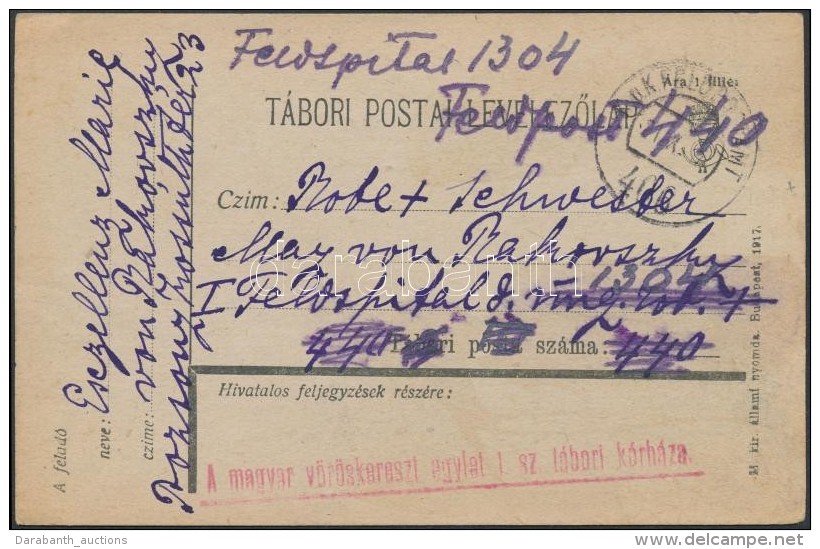 Feldspital 1304
Feldpost 440
Ára 1 fillér
TÁBORI POSTAI LEVELEZŐLAP.
Czim: Robe + Schwester
May von Rakovszky
1304
I Feldspital d. ung. rot. +
440 Tábori posta száma: 440
Hivatalos feljegyzések részére:
A magyar vöröskereszt egylet I sz. tábori kórháza.
A feladó
neve: Exzellenz Marie
czime: von Rakovszky
Pozsony
M. kir. állami nyomda. Budapest, 1917.
darabanth
Darabanth_auctions
delcampe.net